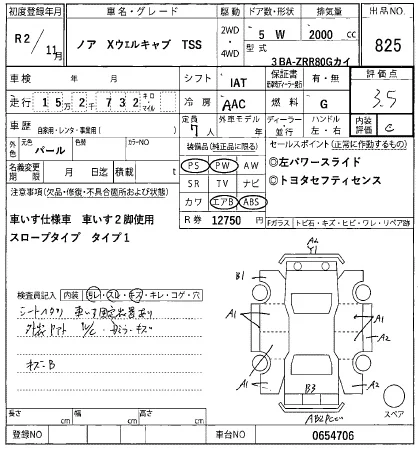 初度登録年月 車名・グレード 駆動 ドア数・形状 排気量 出品NO
R2/11月 ノア Xウェルキャブ TSS 2WD・4WD 5 W 2000cc 825
型式 3BA-ZRR80Gカイ
車検 年 月 シフト IAT 保証書 有・無 評価点
走行 15万2千732キロ・マイル 冷房 AAC 燃料 G 3.5
車歴 自家用・レンタ・事業用( ) 定員 7人 外車モデル 年 ディーラー 並行 ハンドル 左・右 内装評価 C
外色 元色 パール カラーNO 装備品(純正品に限る) セールスポイント(正常に動作するもの)
名義変更期限 月 日迄 積載量 t PS PW AW ◎左パワースライド
注意事項(欠品・修復・不具合箇所および状態) SR TV ナビ ◎トヨタセフティセンス
車いす仕様車 車いす2脚使用 カワ エアB ABS
スロープタイプ タイプ1 R券 12750円 Fガラス トビ石・キズ・ヒビ・ワレ・リペア跡
A2
Y1
B1 A1
検査員記入 内装 汚レ・スレ・キズ・キレ・コゲ・穴
車いす固定装置あり
A1 A1 A2
キズ・B
A1 A2
B3
スペア
長さ cm 幅 cm 高さ cm
登録NO 車台NO 0654706